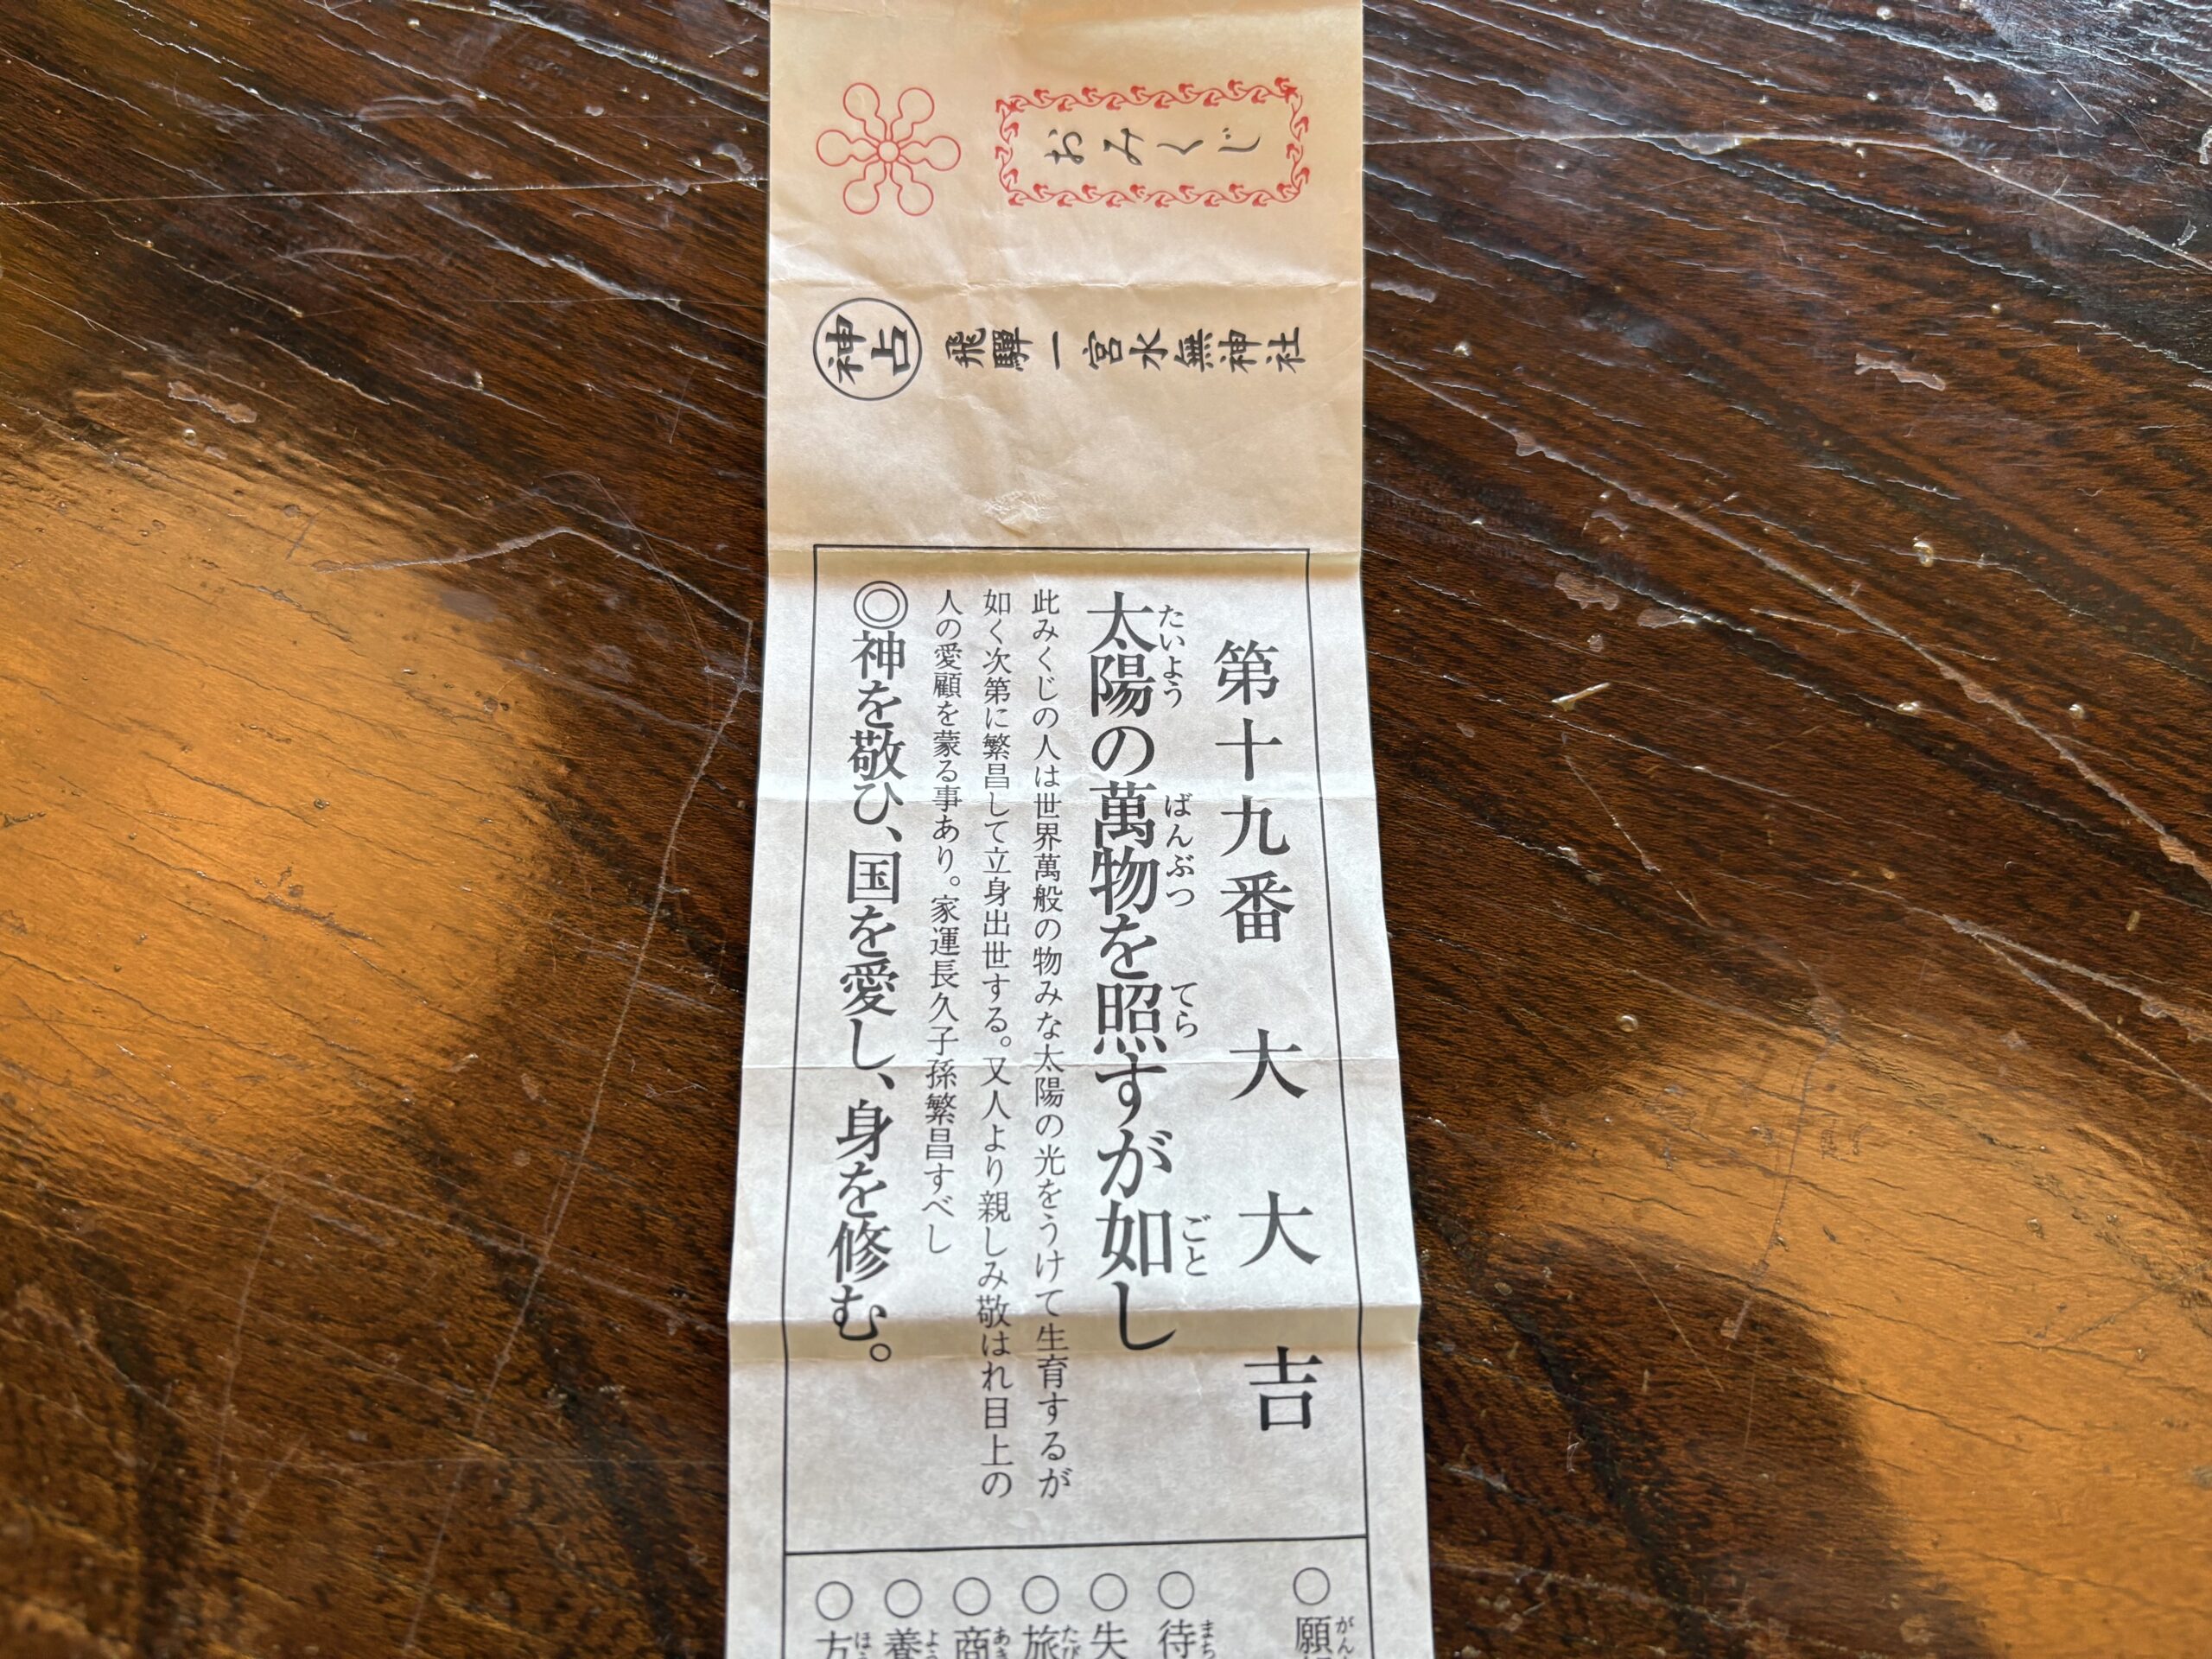 おみくじ
神占
飛騨一宮水無神社
第十九番 大大吉
太陽の萬物を照すが如し
たいよう ばんぶつ てら ごと
此みくじの人は世界萬般の物みな太陽の光をうけて生育するが
如く次第に繁昌して立身出世する。又人より親しみ敬はれ目上の
人の愛顧を蒙る事あり。家運長久子孫繁昌すべし
◎神を敬ひ、国を愛し、身を修む。
○願
がん
○待
まち
○失
○旅
たび
○商
あき
○養
よう
○方
ほう